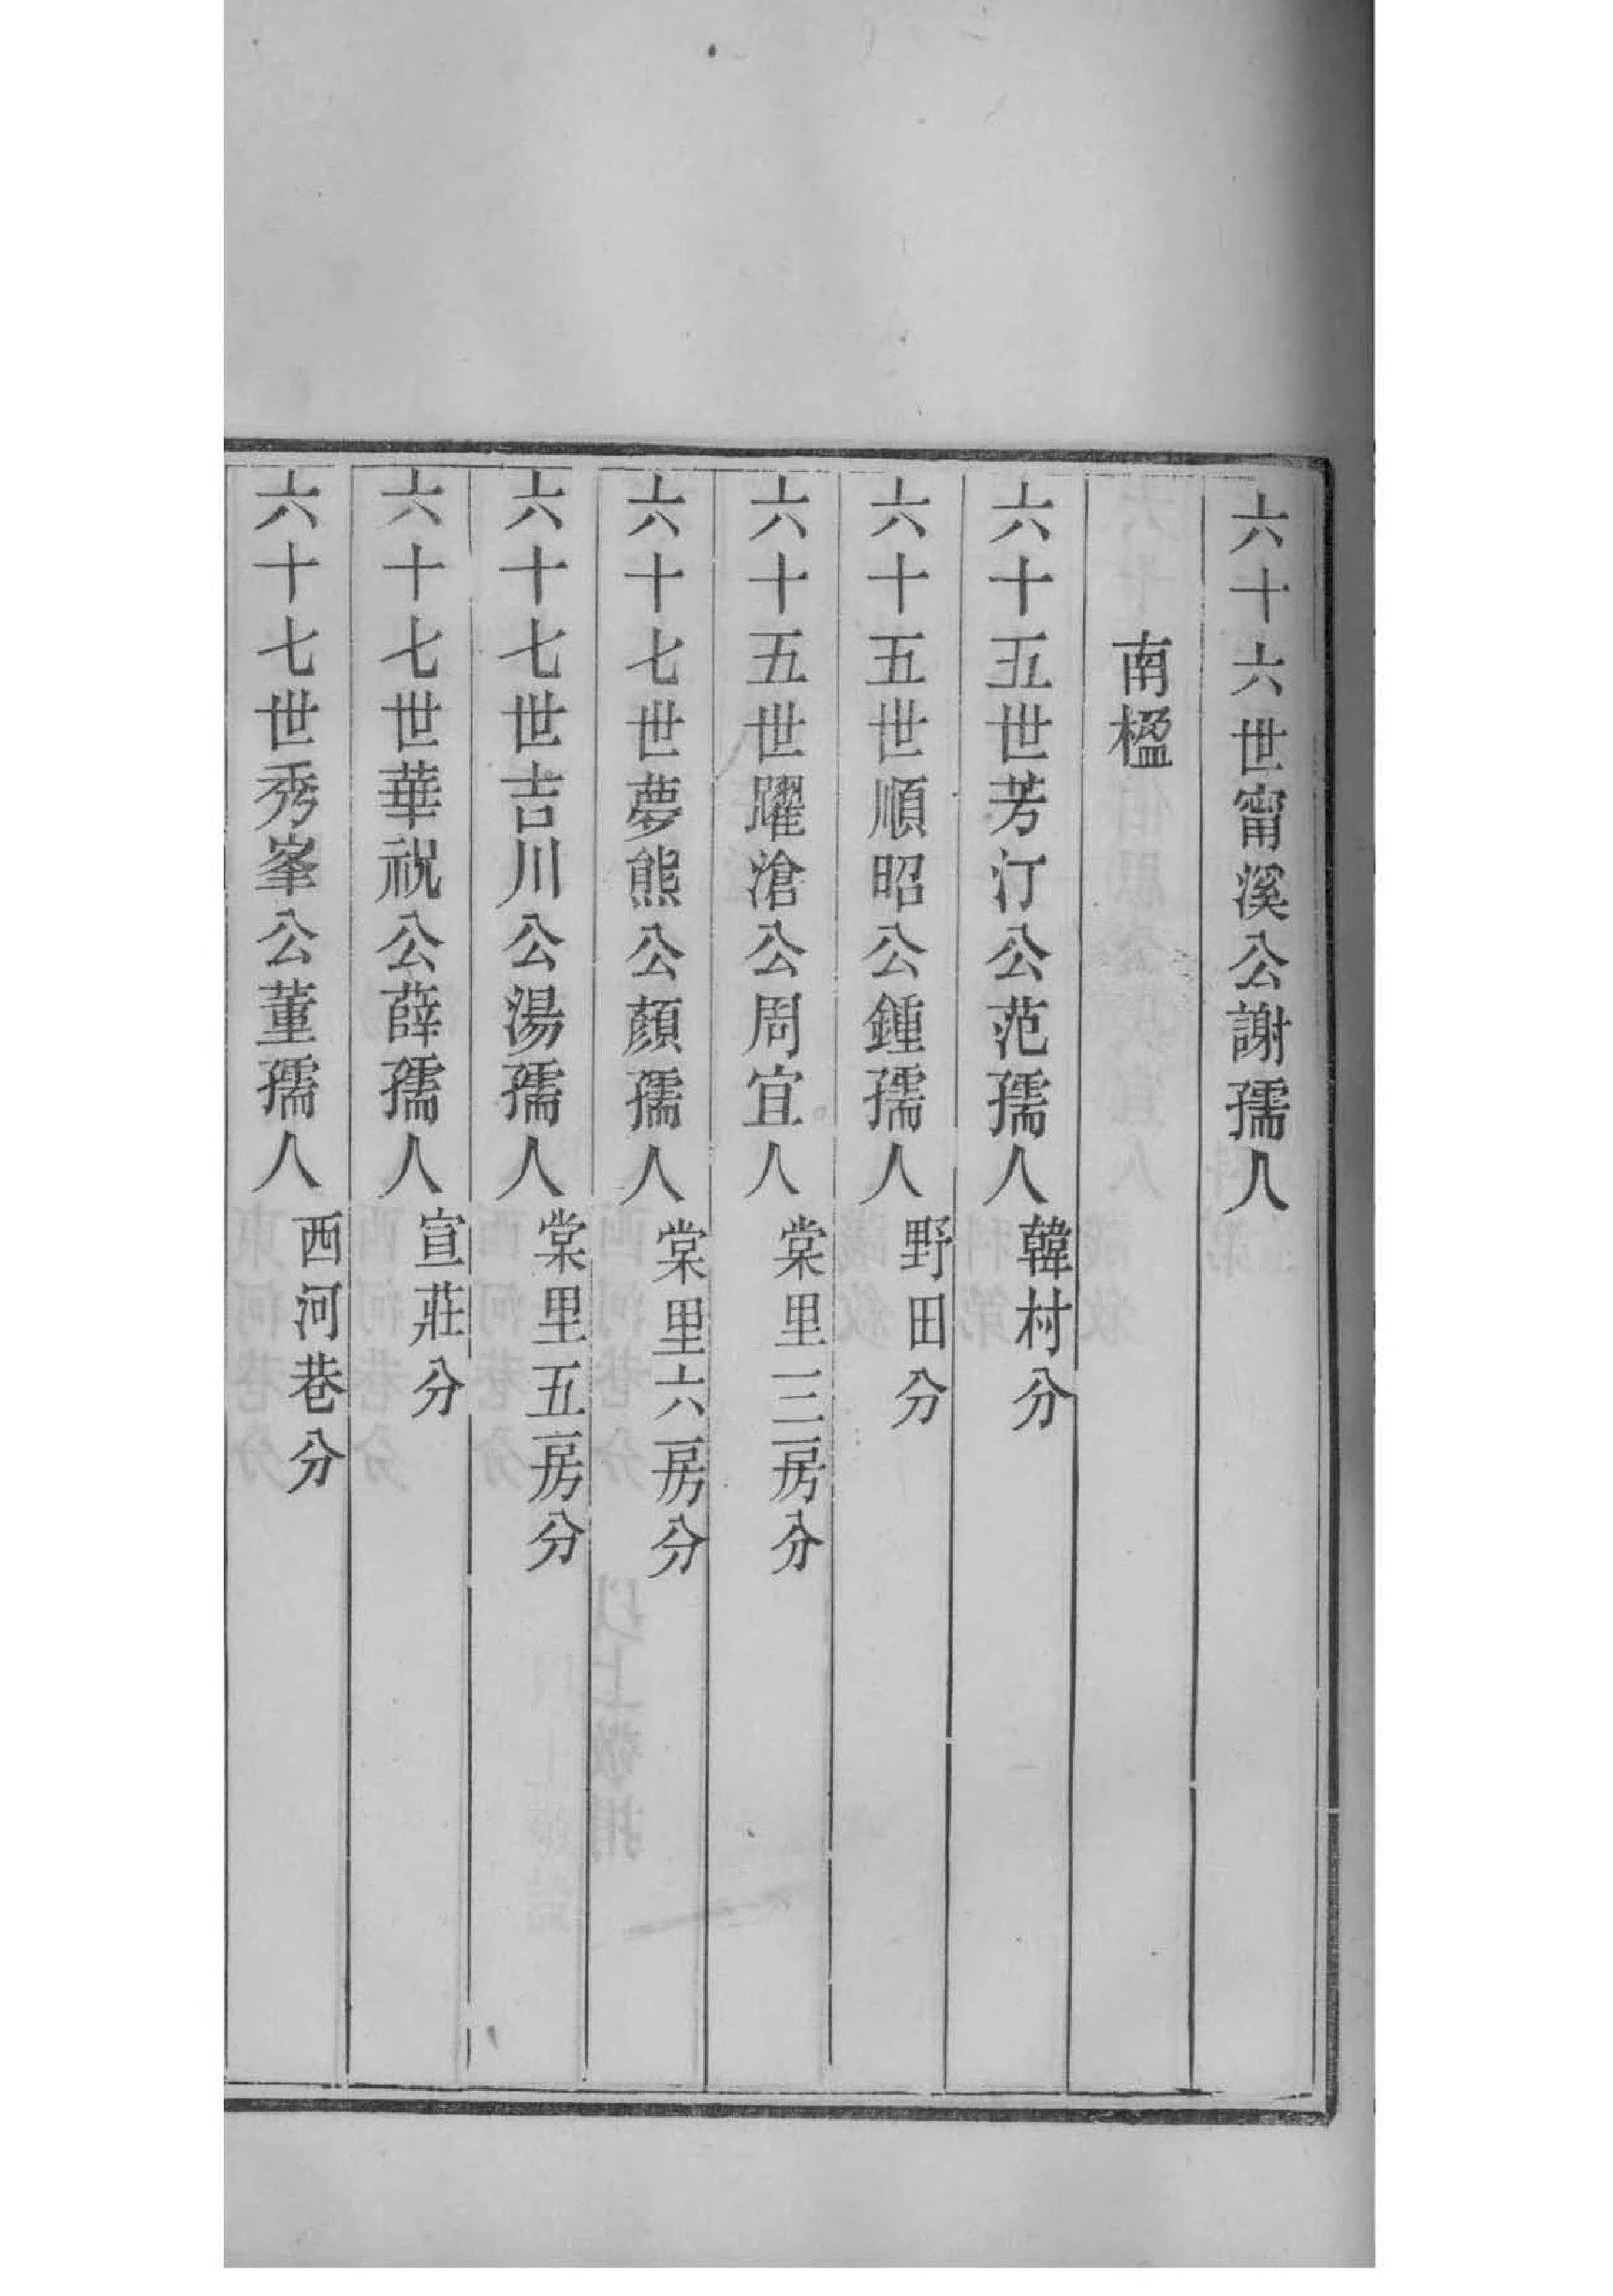 六十六世甯溪公謝孺人
南楹
六十五世芳汀公范孺人韓村分
六十五世順昭公鍾孺人野田分
六十五世躍滄公周宜人棠里三房分
六十七世夢熊公顏孺人棠里六房分
六十七世吉川公湯孺人棠里五房分
六十七世華祝公薛孺人宣莊分
六十七世秀峯公董孺人西河巷分